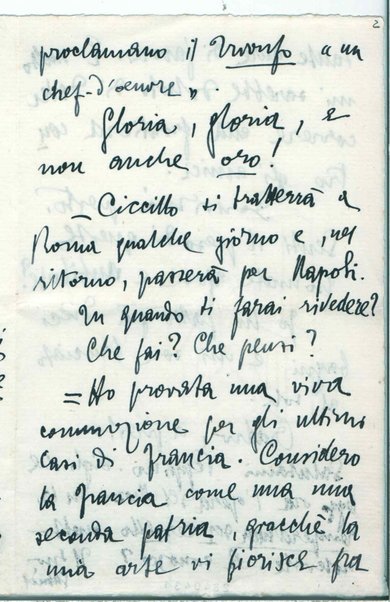 2
proclamano il Trionfo "un
chef-d'oeuvre".
Gloria, gloria, e
non anche oro!
= Ciccillo si tratterrà a
Roma qualche giorno e, nel
ritorno, passerà per Napoli.
Tu quando ti farai rivedere?
Che fai? Che pensi?
= Ho provata una viva
commozione per gli ultimi
casi di Francia. Considero
la Francia come una mia
seconda patria, giacchè la
mia arte vi fiorisce fra